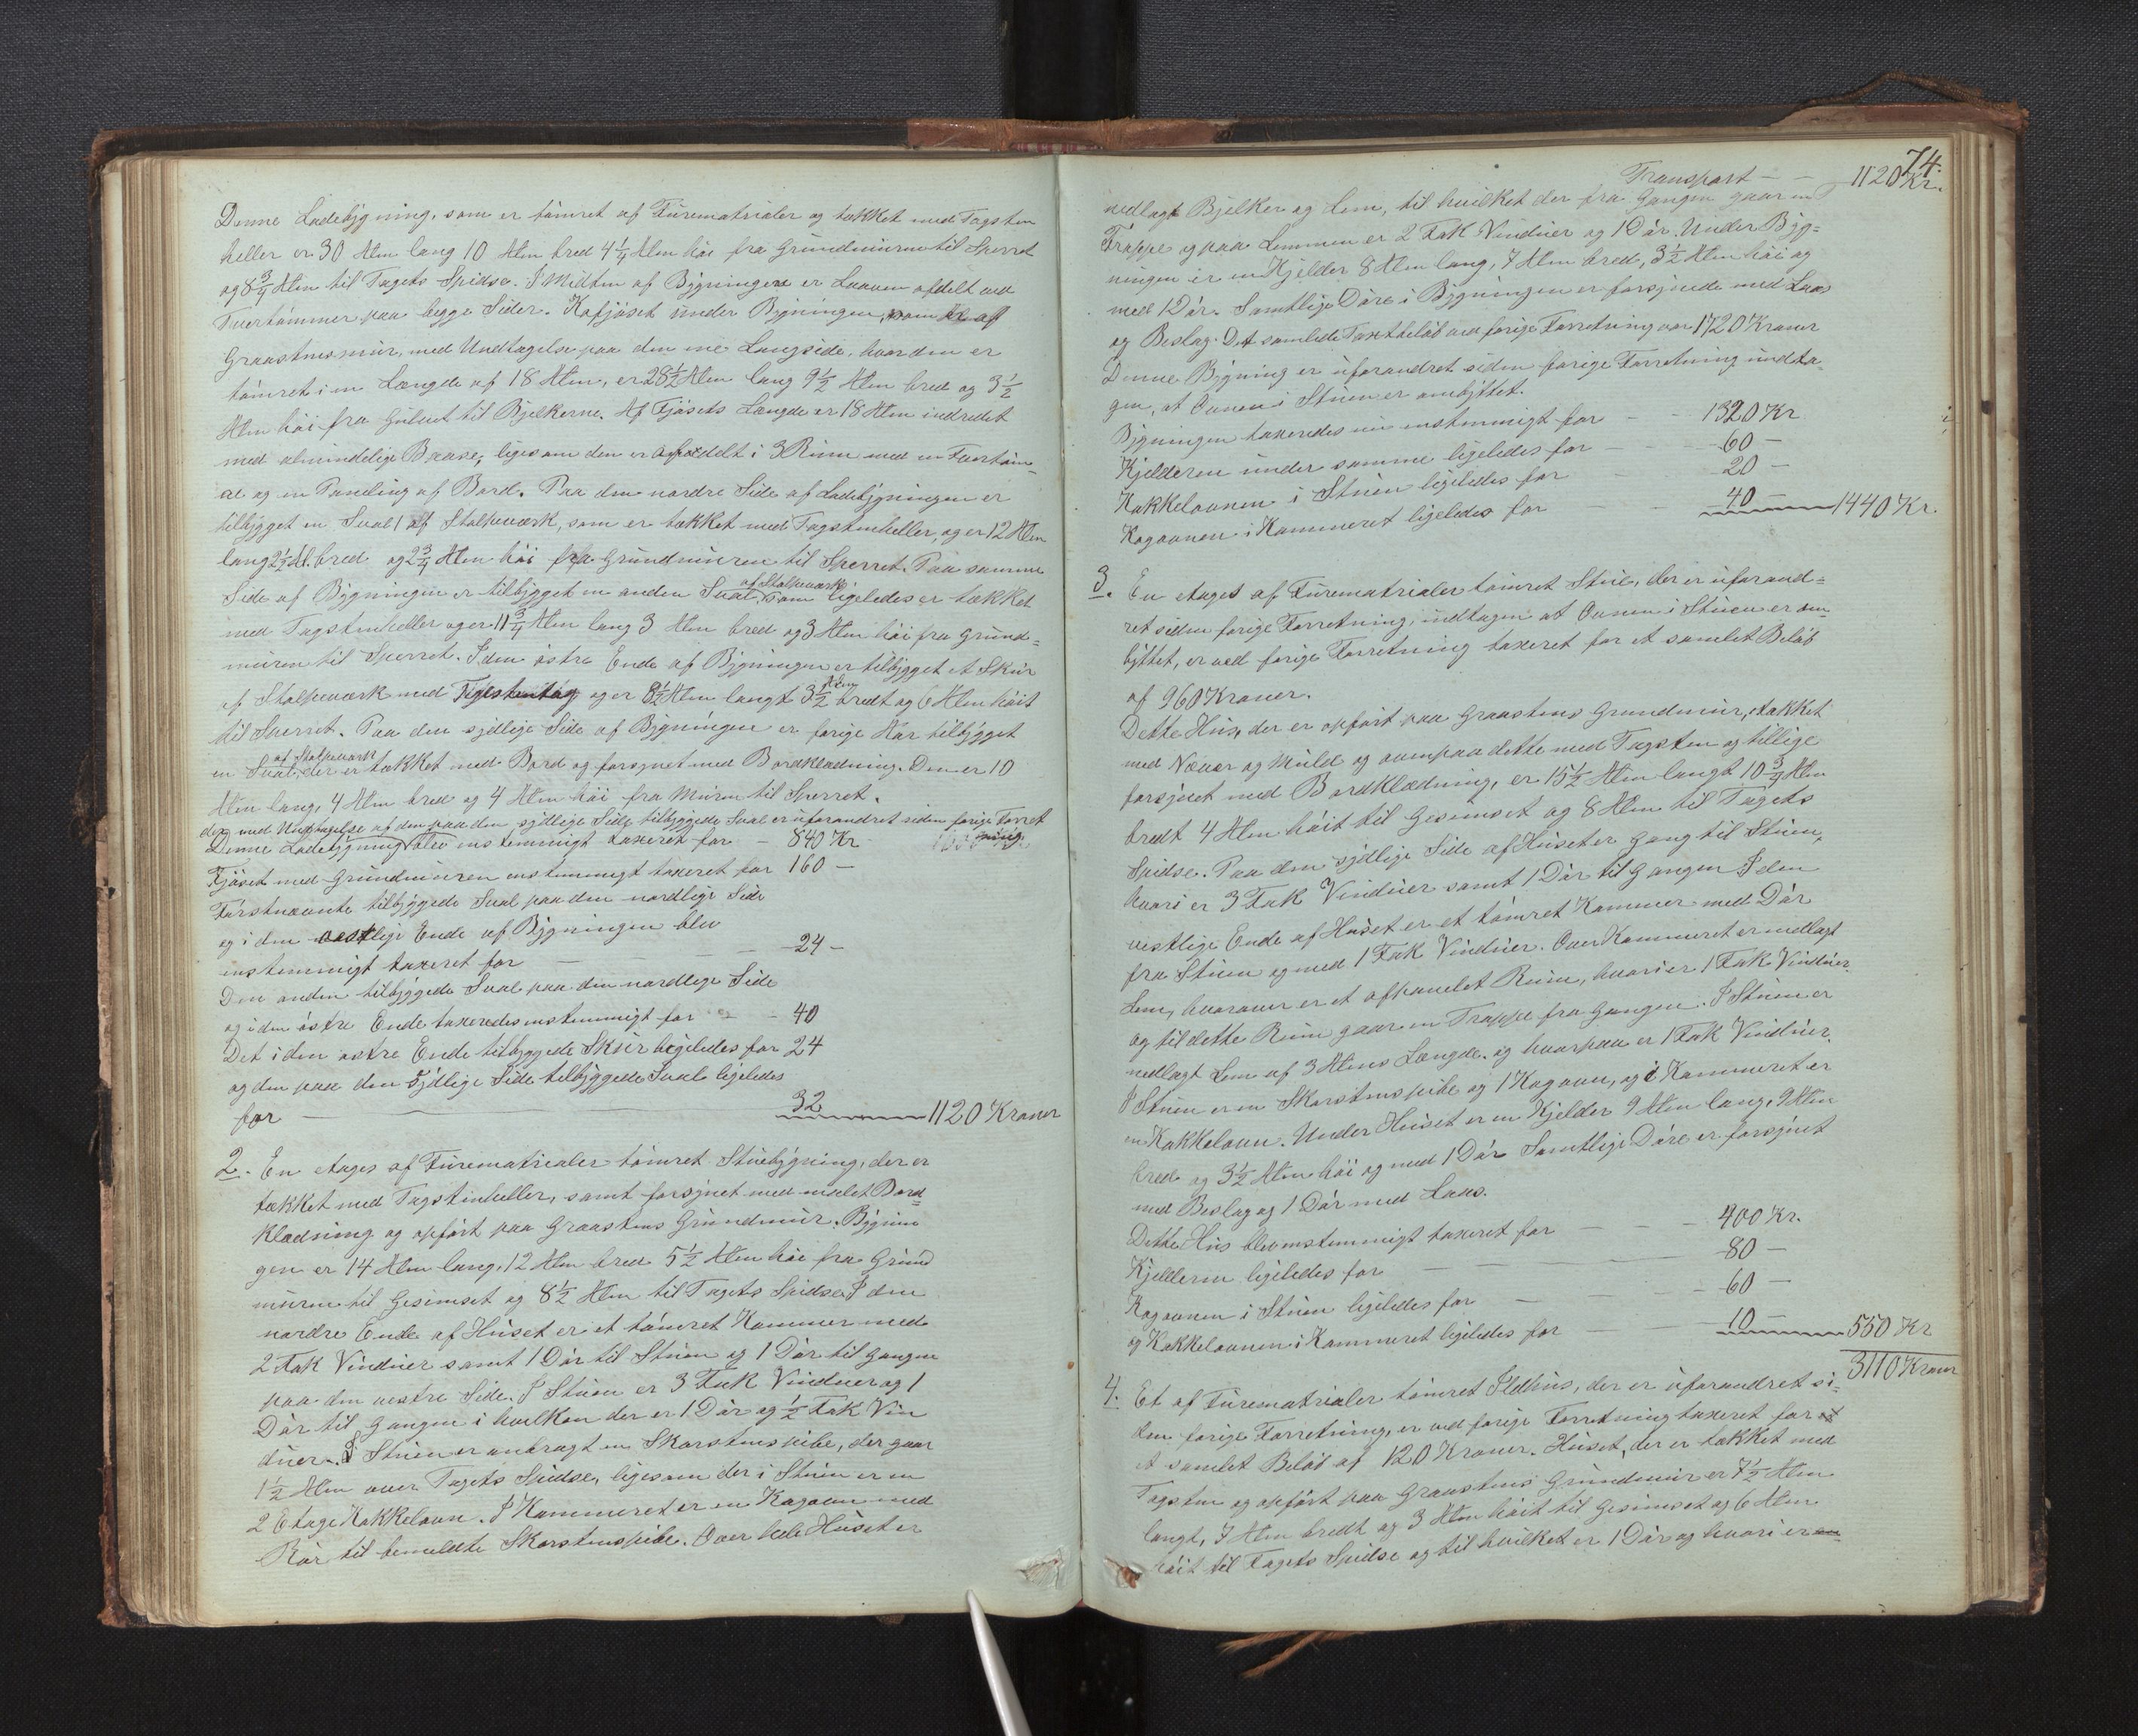 Denne Ladebygning, som er tømret af Furematrialer og tækket med Tagsten
heller er 30 Alen lang 10 Alen bred 4 1/4 Alen høi fra Grundmuren til Sperret
og 8 3/4 Alen til Tagets Spidse. I Midten af Bygningen er Laaven afdelt ved
Tvertømmer paa begge Sider. Kofjøset under Bygningen, som er af
Graastensmur, med Undtagelse paa den ene Langside, hvor den er
tømret i en Længde af 18 Alen, er 28 1/2 Alen lang 9 1/2 Alen bred og 3 1/2
Alen høi fra Gulvet til Bjelkerne. Af Fjøsets Længde er 18 Alen indredet
med almindelige Baase, ligesom den er afdelt i 3 Rum med en Tvertøm
re og en Paneling af Bord. Paa den nordre Side af Ladebygningen er
tilbygget en Sval af Stolpeværk, som er tækket med Tagstenheller, og er 12 Alen
lang 2 1/2 Al. bred og 2 3/4 Alen høi fra Grundmuren til Sperret. Paa samme
Side af Bygningen er tilbygget en anden Sval, af Stolpeværk som ligeledes er tækket
med Tagstenheller og er 11 3/4 Alen lang 3 Alen bred og 3 Alen høi fra Grund=
muren til Sperret. I den østre Ende af Bygningen er tilbygget et Skur
af Stolpeværk med Tagstentag og er 8 1/2 Alen langt 3 1/2 Alen bredt og 6 Alen høit
til Sperret. Paa den sydlige Side af Bygningen er forige Aar tilbygget
en Sval, af Stolpeværk der er tækket med Bord og forsynet med Bordklædning. Den er 10
Alen lang, 4 Alen bred og 4 Alen høi fra Muren til Sperret.
der med Undtagelse af den paa den sydlige Side tilbyggede Sval er uforandret siden forige Forret
ning
Denne Ladebygning blev enstemmigt taxeret for - 840 Kr
Fjøset med Grundmuren enstemmigt taxeret for 160 -
Førstnævnte tilbyggede Sval paa den nordlige Side
og i den vestlige Ende af Bygningen blev
enstemmigt taxeret for - - - 24 -
Den anden tilbyggede Sval paa den nordlige Side
og i den østre Ende taxeredes enstemmigt for - - 40
Det i den østre Ende tilbyggede Skur ligeledes for 24
og den paa den sydlige Side tilbyggede Sval ligeledes
for - 32 1120 Kroner
2. En Etages af Furematrialer tømret Stuebygning, der er
tækket med Tagstenheller, samt forsynet med malet Bord
klædning og opført paa Graastens Grundmur. Bygnin
gen er 14 Alen lang, 12 Alen bred 5 1/2 Alen høi fra Grund
muren til Gesimset og 8 1/2 Alen til Tagets Spidse. I den
nordre Ende af Huset er et tømret Kammer med
2 Fak Vinduer samt 1 Dør til Stuen og 1 Dør til Gangen
paa den vestre Side. I Stuen er 3 Fak Vinduer og 1
Dør til Gangen i hvilken der er 1 Dør og 1/2 Fak Vin
duer. I Stuen er anbragt en Skorstenspibe, der gaar
1 1/2 Alen over Tagets Spidse, ligesom der i Stuen er en
2 Etage Kakkelovn. I Kammeret er en Kogovn med
Rør til bemeldte Skorstenspibe. Over hele Huset er
74.
Transport - - 1120 Kr.
nedlagt Bjelker og Lem, til hvilket der fra Gangen gaar en
Trappe og paa Lemmen er 2 Fak Vinduer og 1 Dør. Under Byg=
ningen er en Kjelder 8 Alen lang, 7 Alen bred, 3 1/2 Alen høi og
med 1 Dør. Samtlige Døre i Bygningen er forsynede med Laas
og Beslag. Det samlede Taxtbeløb ved forige Forretning var 1720 Kroner
Denne Bygning er uforandret siden forige Forretning undta=
gen, at Ovnen i Stuen er ombyttet.
Bygningen taxeredes nu enstemmigt for - - 1320 Kr
Kjelderen under samme ligeledes for - - 60 -
Kakkelovnen i Stuen ligeledes for - 20 -
Kogovnen i Kammeret ligeledes for - - 40 - 1440 Kr.
3. En Etages af Furematrialer tømret Stue, der er uforand=
ret siden forige Forretning, undtagen at Ovnen i Stuen er om
byttet, er ved forige Forretning taxeret for et samlet Beløb
af 960 Kroner.
Dette Hus, der er opført paa Graastens Grundmur, tækket
med Næver og Muld og ovenpaa dette med Tagsten og tillige
forsynet med Bordklædning, er 15 1/2 Alen langt 10 3/4 Alen
bredt 4 Alen høit til Gesimset og 8 Alen til Tagets
Spidse. Paa den sydlige Side af Huset er Gang til Stuen,
hvori er 3 Fak Vinduer samt 1 Dør til Gangen I den
vestlige Ende af Huset er et tømret Kammer med Dør
fra Stuen og med 1 Fak Vinduer. Over Kammeret er nedlagt
Lem, hvorover er et afpanelet Rum, hvori er 1 Fak Vinduer
og til dette Rum gaar en Trappe fra Gangen. I Stuen er
nedlagt Lem af 3 Alens Længde, og hvorpaa er 1 Fak Vinduer.
I Stuen er en Skorstenspibe og 1 Kogovn, og i Kammeret er
en Kakkelovn. Under Huset er en Kjelder 9 Alen lang, 9 Alen
bred og 3 1/2 Alen høi og med 1 Dør Samtlige Døre er forsynet
med Beslag og 1 Dør med Laas.
Dette Hus blev enstemmigt taxeret for - - - 400 Kr.
Kjelderen ligeledes for - - - - 80 -
Kogovnen i Stuen ligeledes for - - - 60 -
og Kakkelovnen i Kammeret ligeledes for - - 10 - 550 Kr
3110 Kroner
4. Et af Furematrialer tømret Ildhus, der er uforandret si=
den forige Forretning, er ved forige Forretning taxeret for
et samlet Beløb af 120 Kroner. Huset, der er tækket med
Tagsten og opført paa Graastens Grundmur er 7 1/2 Alen
langt, 7 Alen bredt og 3 Alen høit til Gesimset og 6 Alen
høit til Tagets Spidse og til hvilket er 1 Dør og hvori er en